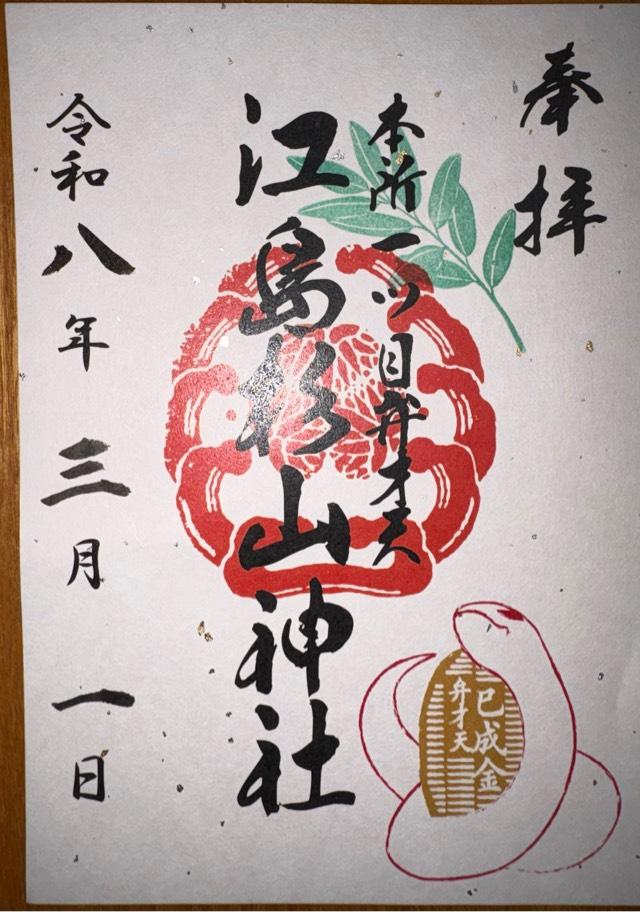 奉拝
本所一ツ目弁才天
江島杉山神社
令和八年三月一日
巳成金
弁才天